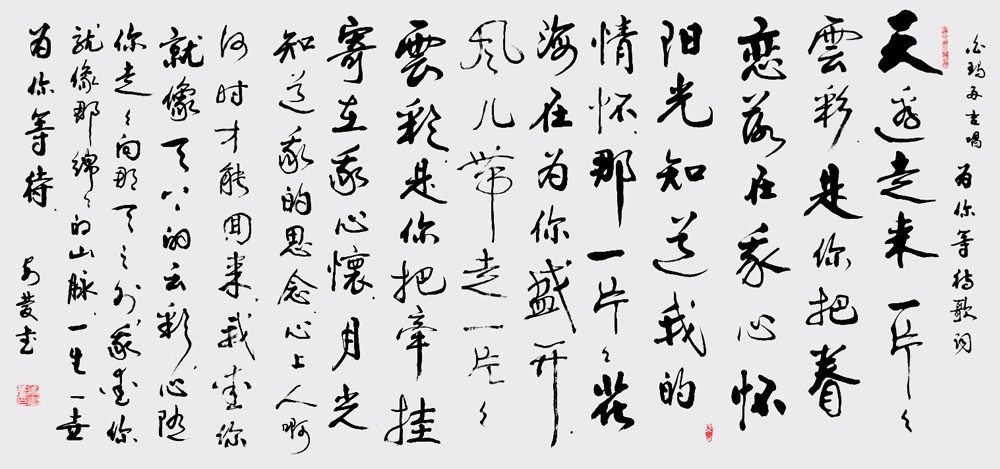 白玛多吉唱 为你等待歌词
天边走来一片々
雲彩是你把眷
恋落在我心怀
阳光知道我的
情怀那一片々花
海在为你盛开
风儿带走一片々
雲彩是你把牵挂
寄在我心懷月光
知道我的思念心上人啊
何时才能回来我爱你
就像天上的云彩心随
你走々向那天之外我爱你
就像那绵々的山脉一生一世
为你等待
书